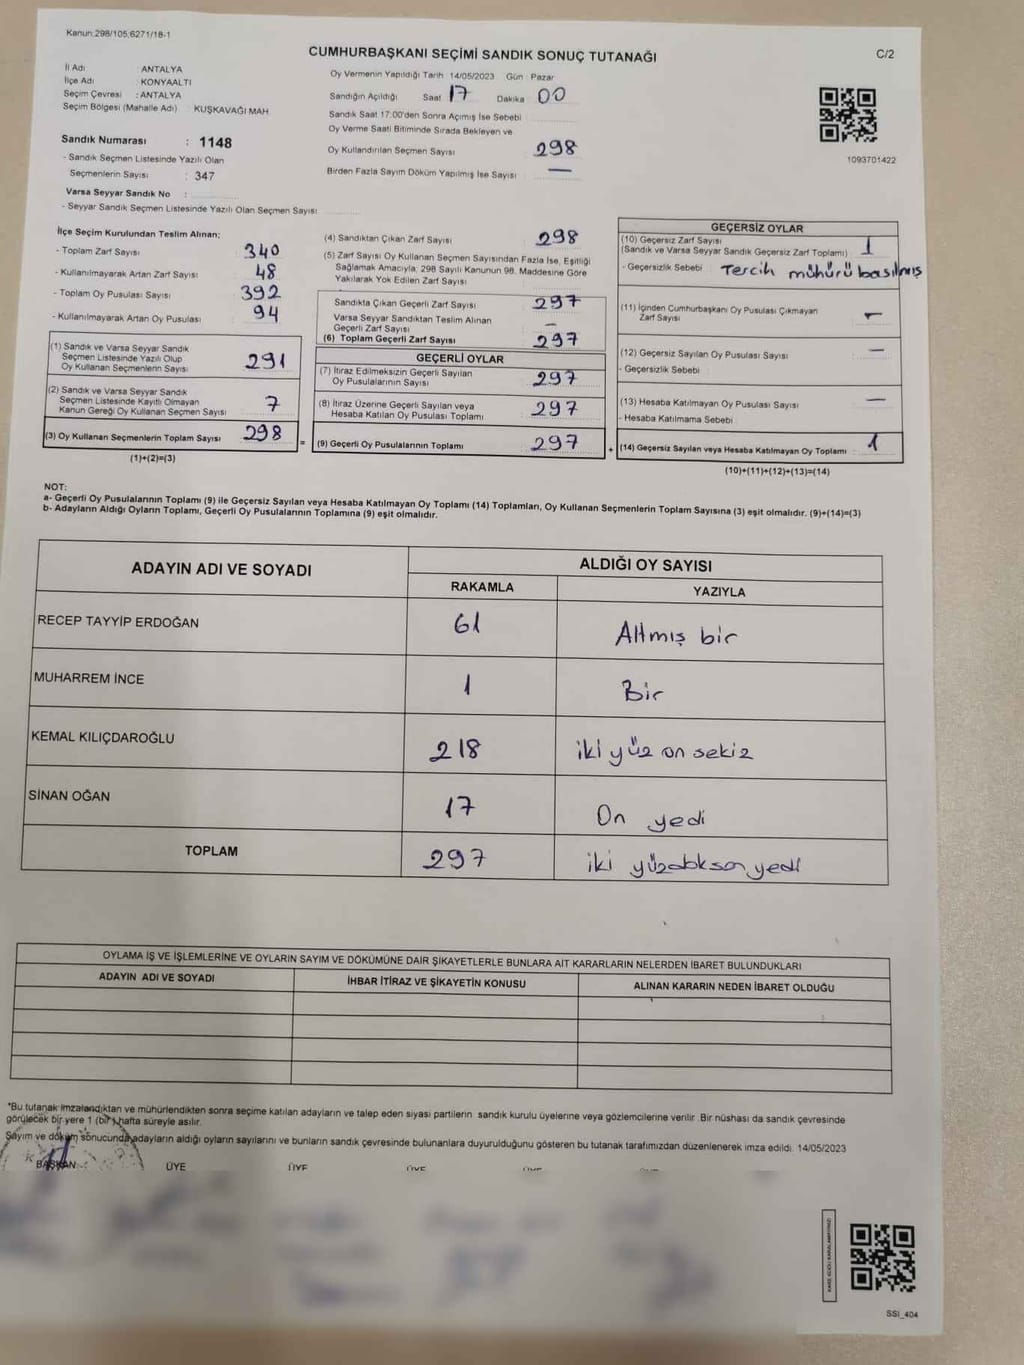 Kanun:298/105,6271/18-1
CUMHURBAŞKANI SEÇİMİ SANDIK SONUÇ TUTANAĞI
C/2
İl Adı ANTALYA
İlçe Adı : KONYAALTI
Seçim Çevresi : ANTALYA
Seçim Bölgesi (Mahalle Adı) : KUŞKAVAĞI MAH
Sandık Numarası : 1148
- Sandık Seçmen Listesinde Yazılı Olan
Seçmenlerin Sayısı : 347
Varsa Seyyar Sandık No :
- Seyyar Sandık Seçmen Listesinde Yazılı Olan Seçmen Sayısı
Oy Vermenin Yapıldığı Tarih 14/05/2023 Gün : Pazar
Sandığın Açıldığı Saat 17 Dakika 00
Sandık Saat 17:00'den Sonra Açımış İse Sebebi
Oy Verme Saati Bitiminde Sırada Bekleyen ve
Oy Kullandırılan Seçmen Sayısı 298
Birden Fazla Sayım Döküm Yapılmış İse Sayısı —
1093701422
İlçe Seçim Kurulundan Teslim Alınan:
- Toplam Zarf Sayısı 340
- Kullanılmayarak Artan Zarf Sayısı 48
- Toplam Oy Pusulası Sayısı 392
- Kullanılmayarak Artan Oy Pusulası 94
(1) Sandık ve Varsa Seyyar Sandık
Seçmen Listesinde Yazılı Olup
Oy Kullanan Seçmenlerin Sayısı 291
(2) Sandık ve Varsa Seyyar Sandık
Seçmen Listesinde Kayıtlı Olmayan
Kanun Gereği Oy Kullanan Seçmen Sayısı 7
(3) Oy Kullanan Seçmenlerin Toplam Sayısı 298 =
(1)+(2)=(3)
(4) Sandıktan Çıkan Zarf Sayısı 298
(5) Zarf Sayısı Oy Kullanan Seçmen Sayısından Fazla İse, Eşitliği
Sağlamak Amacıyla; 298 Sayılı Kanunun 98. Maddesine Göre
Yakılarak Yok Edilen Zarf Sayısı
Sandıkta Çıkan Geçerli Zarf Sayısı 297
Varsa Seyyar Sandıktan Teslim Alınan
Geçerli Zarf Sayısı —
(6) Toplam Geçerli Zarf Sayısı 297
GEÇERLİ OYLAR
(7) İtiraz Edilmeksizin Geçerli Sayılan
Oy Pusulalarının Sayısı 297
(8) İtiraz Üzerine Geçerli Sayılan veya
Hesaba Katılan Oy Pusulası Toplamı 297
(9) Geçerli Oy Pusulalarının Toplamı 297 +
GEÇERSİZ OYLAR
(10) Geçersiz Zarf Sayısı
(Sandık ve Varsa Seyyar Sandık Geçersiz Zarf Toplamı) 1
- Geçersizlik Sebebi : Tercih mühürü basılmış
(11) İçinden Cumhurbaşkanı Oy Pusulası Çıkmayan
Zarf Sayısı —
(12) Geçersiz Sayılan Oy Pusulası Sayısı —
- Geçersizlik Sebebi
(13) Hesaba Katılmayan Oy Pusulası Sayısı —
- Hesaba Katılmama Sebebi
(14) Geçersiz Sayılan veya Hesaba Katılmayan Oy Toplamı : 1
(10)+(11)+(12)+(13)=(14)
NOT:
a- Geçerli Oy Pusulalarının Toplamı (9) ile Geçersiz Sayılan veya Hesaba Katılmayan Oy Toplamı (14) Toplamları, Oy Kullanan Seçmenlerin Toplam Sayısına (3) eşit olmalıdır. (9)+(14)=(3)
b- Adayların Aldığı Oyların Toplamı, Geçerli Oy Pusulalarının Toplamına (9) eşit olmalıdır.
ADAYIN ADI VE SOYADI
ALDIĞI OY SAYISI
RAKAMLA YAZIYLA
RECEP TAYYİP ERDOĞAN 61 Altmış bir
MUHARREM İNCE 1 Bir
KEMAL KILIÇDAROĞLU 218 iki yüz on sekiz
SİNAN OĞAN 17 On yedi
TOPLAM 297 iki yüzdokson yedi
OYLAMA İŞ VE İŞLEMLERİNE VE OYLARIN SAYIM VE DÖKÜMÜNE DAİR ŞİKAYETLERLE BUNLARA AİT KARARLARIN NELERDEN İBARET BULUNDUKLARI
ADAYIN ADI VE SOYADI İHBAR İTİRAZ VE ŞİKAYETİN KONUSU ALINAN KARARIN NEDEN İBARET OLDUĞU
*Bu tutanak imzalandıktan ve mühürlendikten sonra seçime katılan adayların ve talep eden siyasi partilerin sandık kurulu üyelerine veya gözlemcilerine verilir .Bir nüshası da sandık çevresinde
görülecek bir yere 1 (bir) hafta süreyle asılır.
Sayım ve döküm sonucunda adayların aldığı oyların sayılarını ve bunların sandık çevresinde bulunanlara duyurulduğunu gösteren bu tutanak tarafımızdan düzenlenerek imza edildi. 14/05/2023
BAŞKAN ÜYE ÜYE ÜYE ÜYE ÜYE
SSİ_404